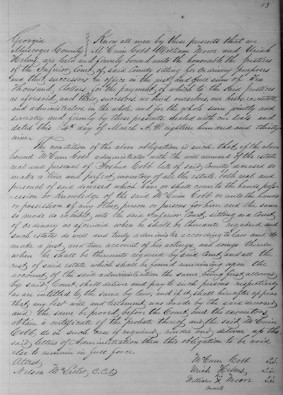 13
Georgia
Musogee County Know all men by these presents that we
McCuin Cobb William Moore and Uriah
are held and firmly bound unto the honorable the justices
of the Inferior Court of said County sitting for ordinary purposes
and their successors in office in the just and full sum of Ten
Thousand Dollars for the payment of which to the said justices
as aforesaid, and their successors, we bind ourselves our heirs executors
and administrators, in the whole, and for the whole sum jointly and
severally and firmly by these presents sealed with our seals and
dated this day of March A.D. eighteen hundred and thirty
The condition of the above obligation is such, that if the above
bound McCuin Cobb administrator with the will annexed of the estate
real and personal of Cobb late of said County deceased do
make a true and perfect inventory of all the estate both real and
personal of said deceased which have or shall come to the hands, possession
or knowledge of the said McCuin Cobb or into the hands
or possession of any other person or persons for him and the same
so made do exhibit into the said Inferior Court, sitting as a Court
of Ordinary as aforesaid when he shall be thereunto required and
such estates do well and truly administer according to law and do
make a just and true account of his actings and doings therein
when he shall be thereunto required by said Court, and all the
rest of said estate which shall be found remaining upon the
account of the said administration the same being first allowed
by said Court, shall deliver and pay to such persons respectively
as are entitled to the same by law, and if it shall hereafter appear
that any last will and testament was made by the said deceased
and the same be proved before the Court, and the executors
obtain a certificate of the probate thereof and the said McCuin
Cobb, do in such case if required, render and deliver up the
said letters of Administration then this obligation to be void
else to remain in full force.
Attest McCuin Cobb
Nelson McLester C.C.O. Uriah
William Moore
mark